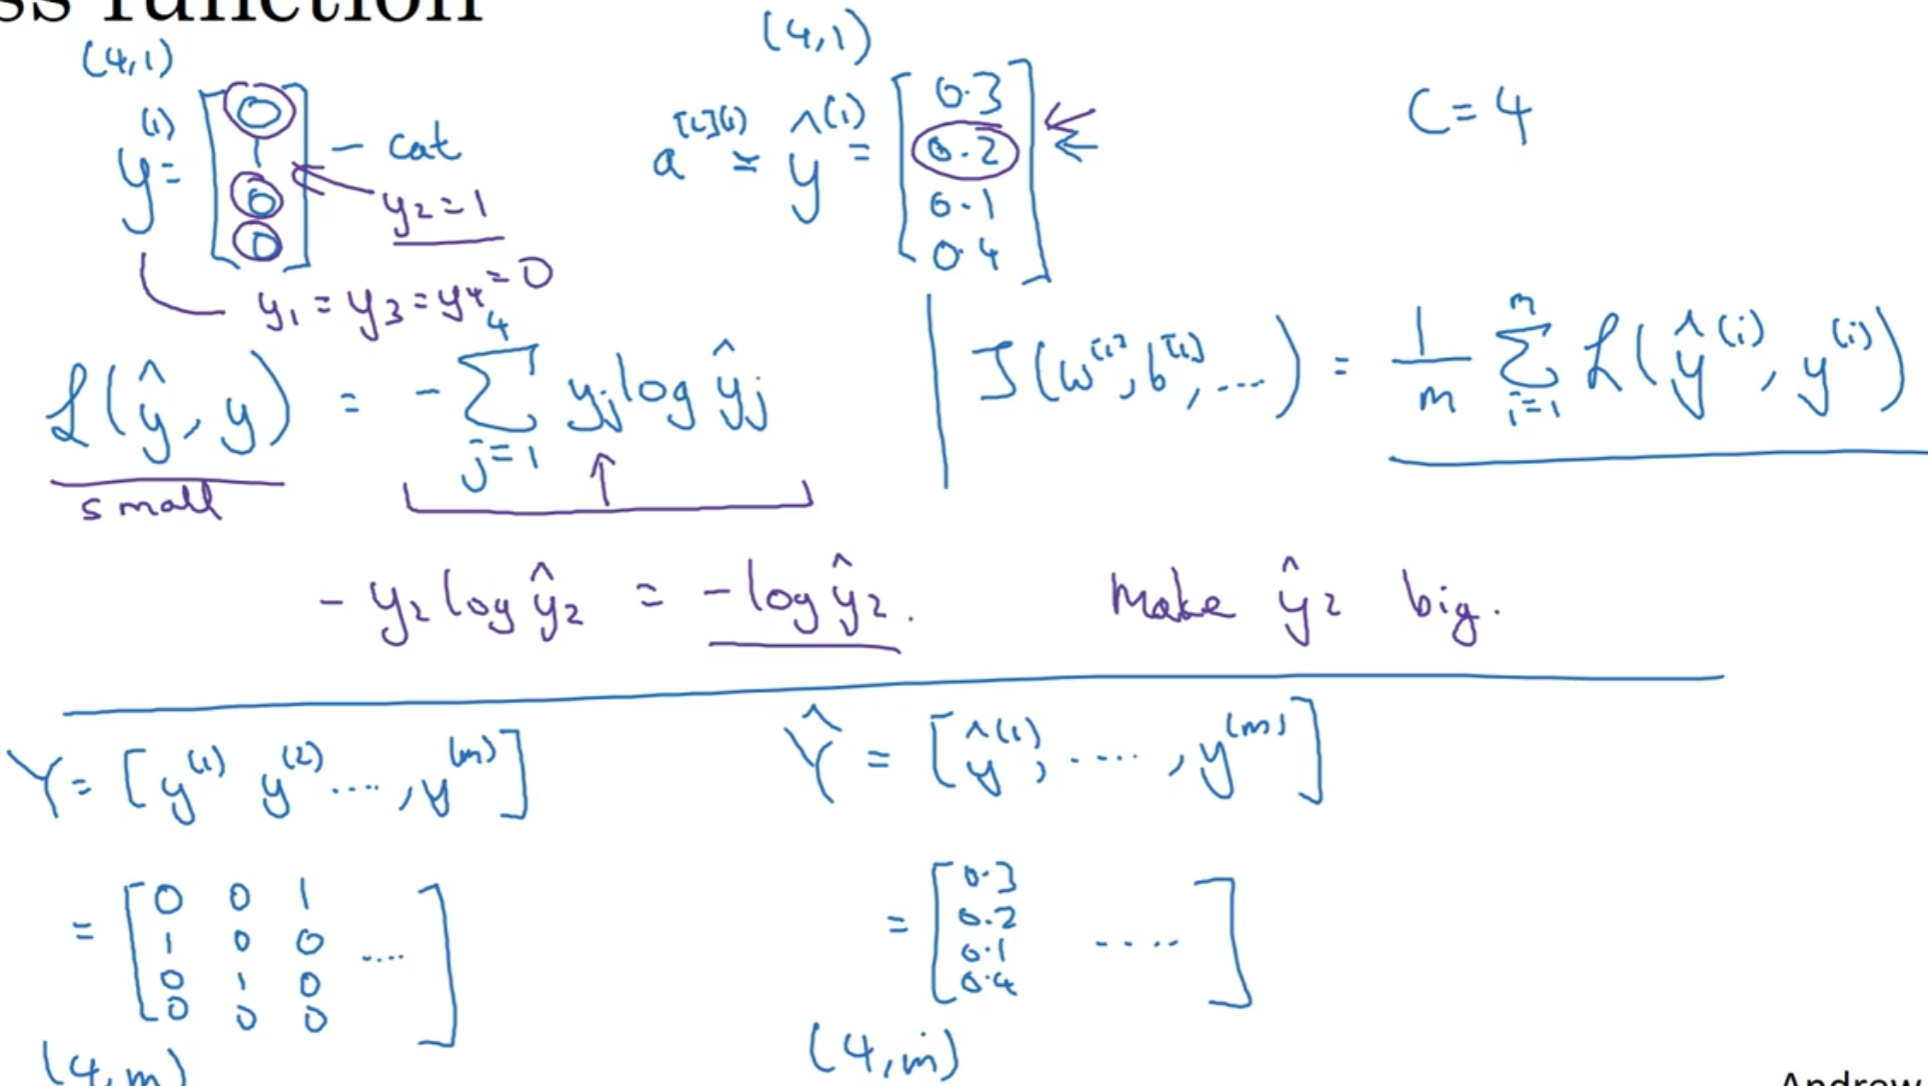 ss function
(4,1)
y^(1) = [0 1 0 0] - cat
y₂ = 1
y₁ = y₃ = y₄ = 0
(4,1)
a^[L](1) = ŷ^(1) = [0.3 0.2 0.1 0.4]
C = 4
ℒ(ŷ, y) = - ∑_{j=1}^{4} yⱼ log ŷⱼ
small
J(w^[1], b^[1], ....) = 1/m ∑_{i=1}^{m} ℒ(ŷ^(i), y^(i))
- y₂ log ŷ₂ = - log ŷ₂. Make ŷ₂ big.
Y = [y^(1) y^(2) ...., y^(m)]
= [0 0 1
1 0 0 ....
0 1 0
0 0 0]
(4,m)
Ŷ = [ŷ^(1), ...., y^(m)]
= [0.3
0.2 ....
0.1
0.4]
(4,m)
Andrew